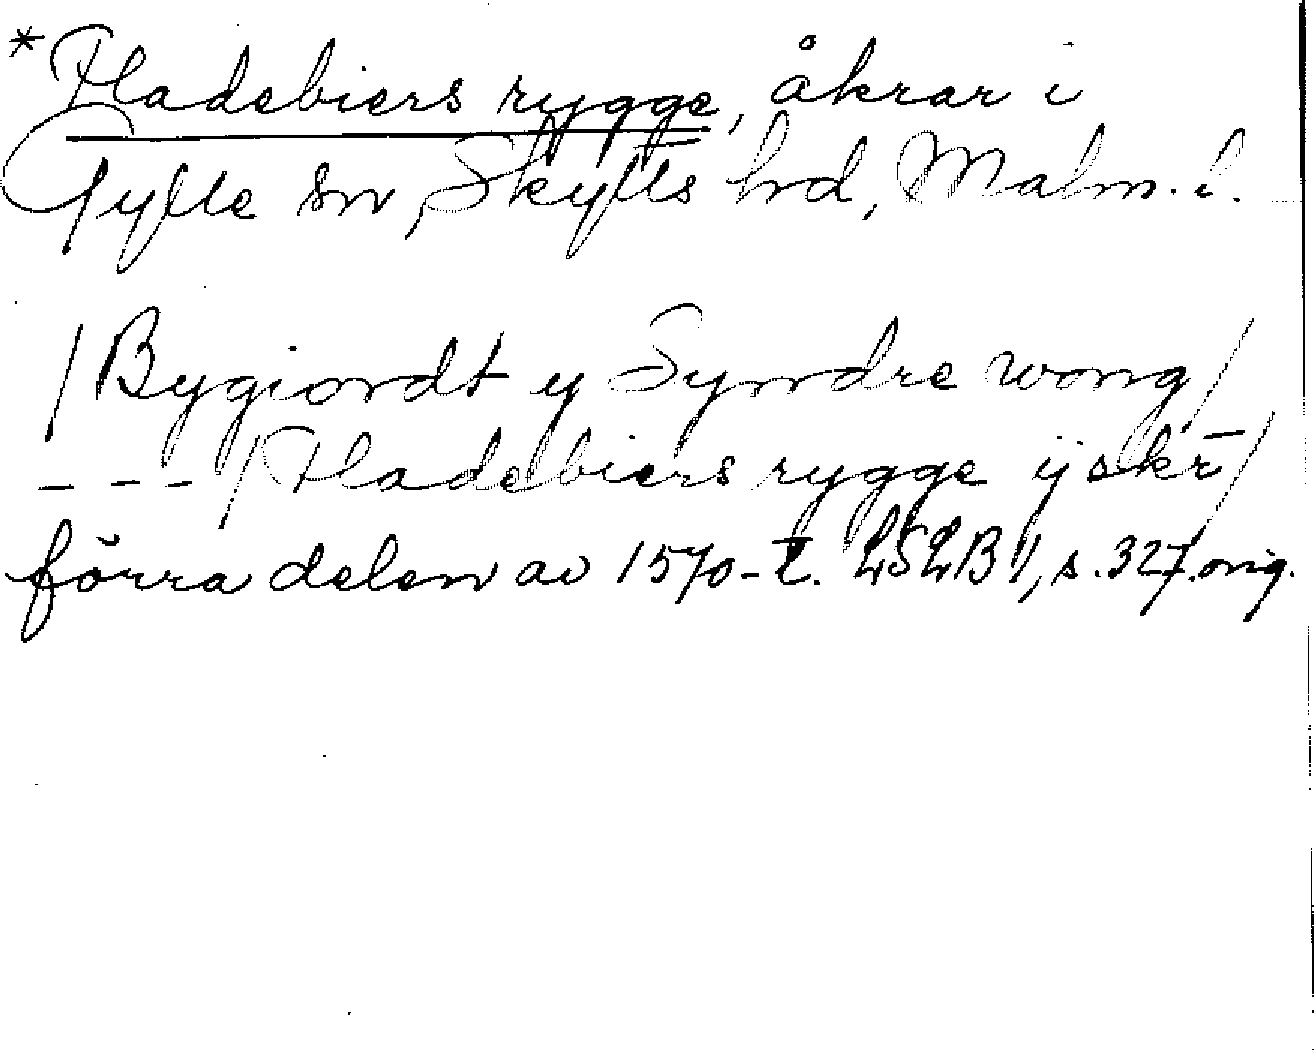 *Hladebiers rygge, åkrar i
Gylle sn, Skytts hd, Malm. l.
/Bygiordt y Syndre wong/
- - - /Hladebiers rygge ÿ skr̄/
förra delen av 1570-t. LSLB 1, s. 327. orig.